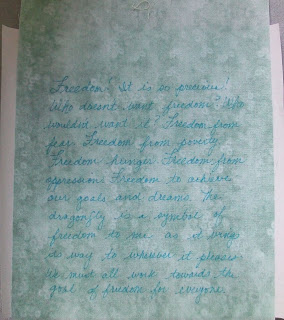 Freedom. It is so precious!
Who doesn't want freedom? Who
wouldn't want it? Freedom from
fear. Freedom from poverty.
Freedom hunger. Freedom from
oppression. Freedom to achieve
our goals and dreams. The
dragonfly is a symbol of
freedom to me as it wings
its way to wherever it pleases.
We must all work towards the
goal of freedom for everyone.